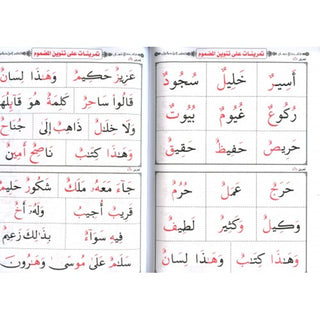 تمرينات على تنوين المضموم
أَسِيرٌ خَلِيلٌ سُجُودٌ
رُكُوعٌ غُيُومٌ بُيُوتٌ
حَرِيصٌ حَفِيظٌ حَقِيقٌ
حَرَجٌ عَمَلٌ حُرُمٌ
وَكِيلٌ وَكَثِيرٌ لَطِيفٌ
وَهَٰذَا كِتَٰبٌ وَهَٰذَا لِسَانٌ
تمرينات على تنوين المضموم
عَزِيزٌ حَكِيمٌ وَهَٰذَا لِسَانٌ
قَالُوا۟ سَاحِرٌ كَلِمَةٌ هُوَ قَآئِلُهَا
وَلَا خِلَٰلٌ ذَاهِبٌ إِلَىٰ جُنَاحٌ
وَهَٰذَا كِتَٰبٌ نَاصِحٌ أَمِينٌ
جَآءَ مَعَهُۥ مَلَكٌ شَكُورٌ حَلِيمٌ
قَرِيبٌ أُجِيبُ وَلَهُۥٓ أَخٌ
فِيهِ سَوَآءٌ بِذَٰلِكَ زَعِيمٌ
سَلَٰمٌ عَلَىٰ مُوسَىٰ وَهَٰرُونَ